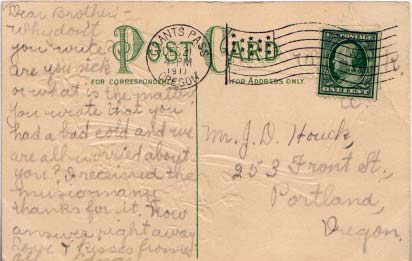 Dear Brother
Why don't
you write
are you sick
or what is the matter
You wrote that you
had a bad cold and we
are all worried about
you? I received the
many
thanks for it. Now
answer right away
Love & kisses from
all
POST CARD
FOR CORRESPONDENCE
FOR ADDRESS ONLY
GRANTS PASS
1911
OREGON
U.S. POSTAGE
ONE CENT
Mr. J. D. Houck,
253 Front St.,
Portland,
Oregon.